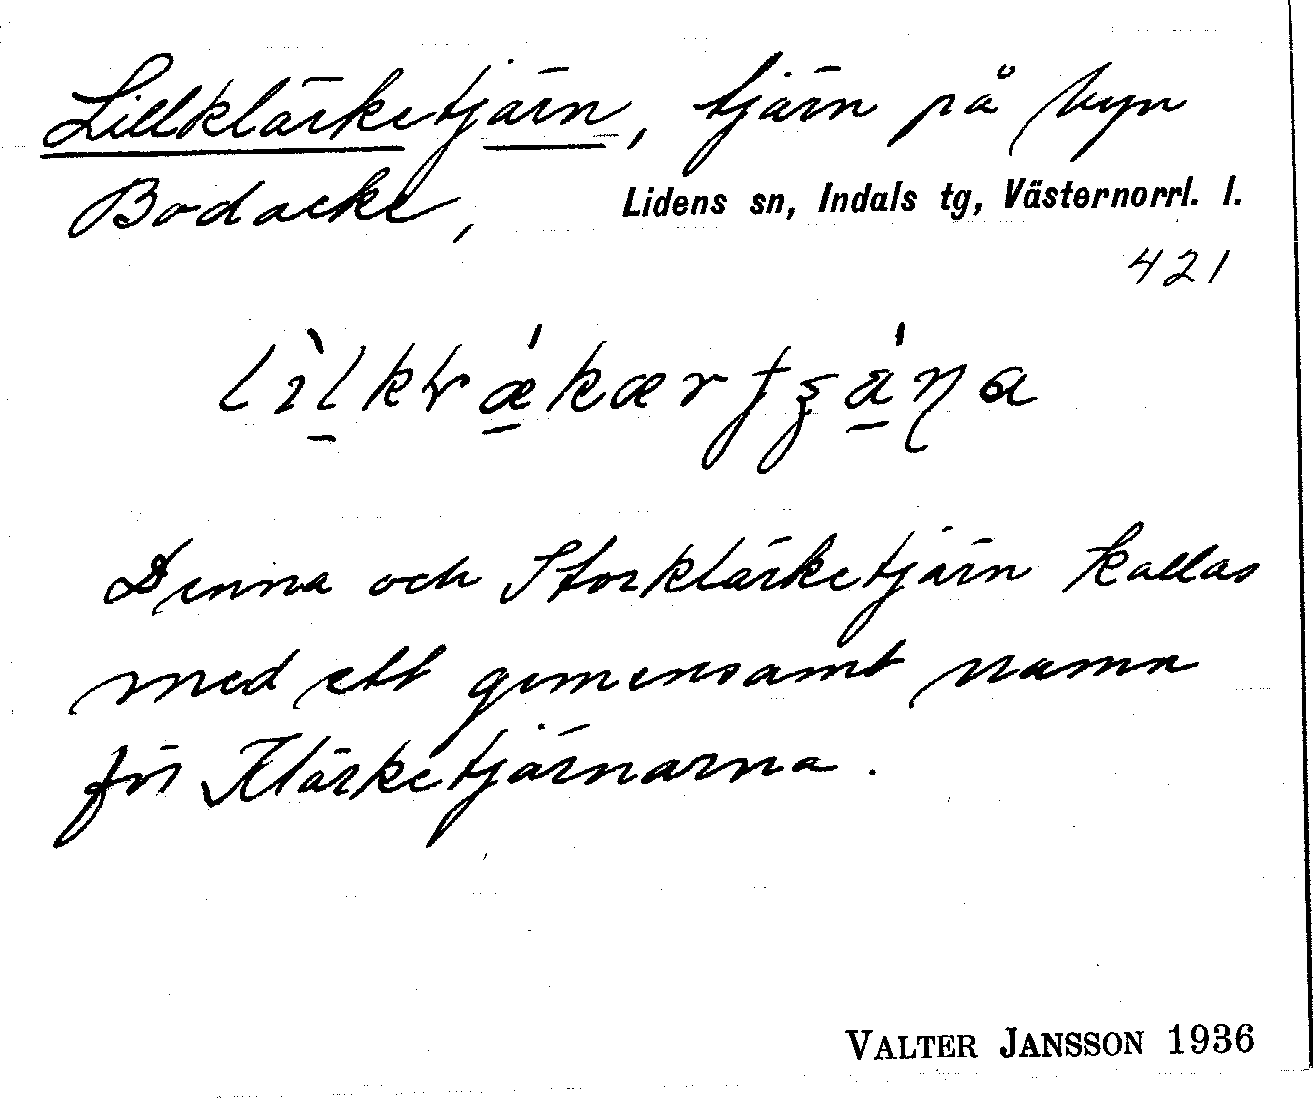 Lillklärketjärn, tjärn på byn
Bodacke, Lidens sn, Indals tg, Västernorrl. l.
421
Denna och Storklärketjärn kallas
med ett gemensamt namn
för Klärketjärnarna.
VALTER JANSSON 1936